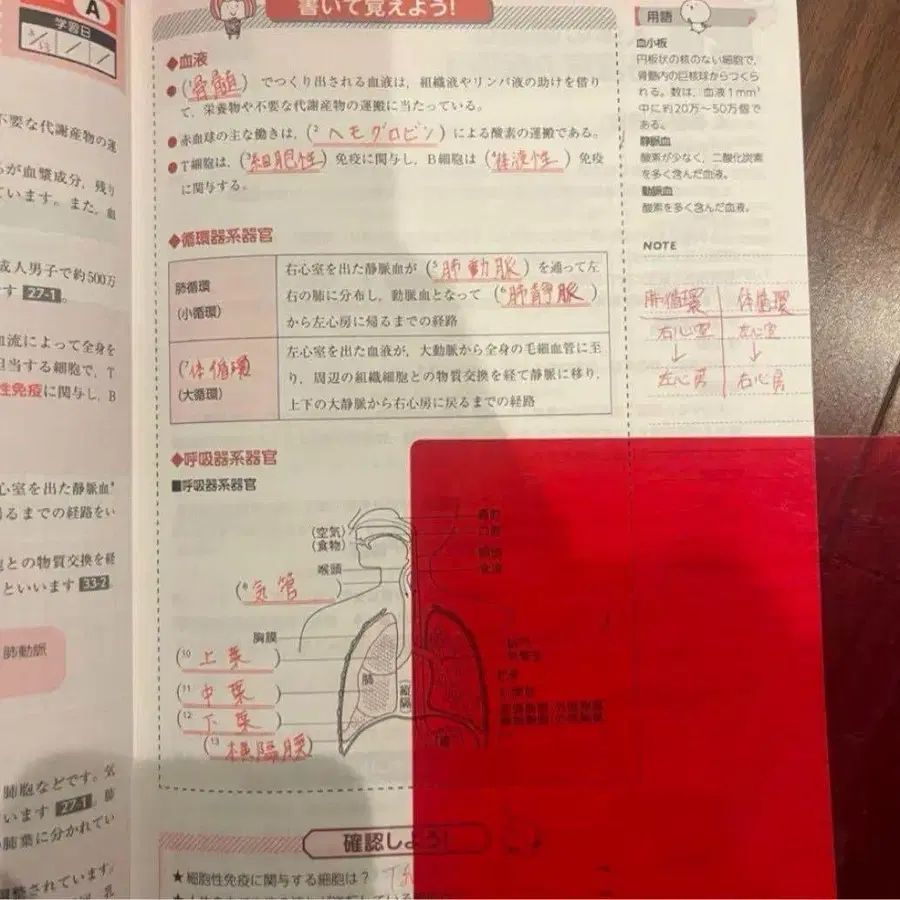 A
学習日
書いて覚えよう!
不要な代謝産物の運
が血漿成分,残り
ています。また,血
成人男子で約500万
す 27-1。
血流によって全身を
担当する細胞で,T
性免疫に関与し,B
心室を出た静脈血
帰るまでの経路をい
との物質交換を経
といいます 33-2
肺動脈
肺胞などです。気
います 27-1。肺
肺葉に分かれてい
調整されています。
◆血液
●(骨髄)でつくり出される血液は,組織液やリンパ液の助けを借り
て,栄養物や不要な代謝産物の運搬に当たっている。
●赤血球の主な働きは,(2 ヘモグロビン)による酸素の運搬である。
●T細胞は,(3細胞性)免疫に関与し,B細胞は(4体液性)免疫
に関与する。
◆循環器系器官
肺循環
(小循環)
右心室を出た静脈血が(5肺動脈)を通って左
右の肺に分布し,動脈血となって(6肺静脈)
から左心房に帰るまでの経路
(7体循環
(大循環)
左心室を出た血液が,大動脈から全身の毛細血管に至
り,周辺の組織細胞との物質交換を経て静脈に移り,
上下の大静脈から右心房に戻るまでの経路
◆呼吸器系器官
■呼吸器系器官
(空気)
(食物)
喉頭
(9気管)
胸膜
(10上葉)
(11中葉)
(12下葉)
(13横隔膜)
肺
縦隔
鼻腔
口腔
咽頭
食道
確認しよう!
★細胞性免疫に関与する細胞は?
用語
血小板
円板状の核のない細胞で,
骨髄内の巨核球からつくら
れる。数は,血液1mm³
中に約20万〜50万個で
ある。
静脈血
酸素が少なく,二酸化炭素
を多く含んだ血液。
動脈血
酸素を多く含んだ血液。
NOTE
肺循環 体循環
右心室 左心室
↓ ↓
左心房 右心房